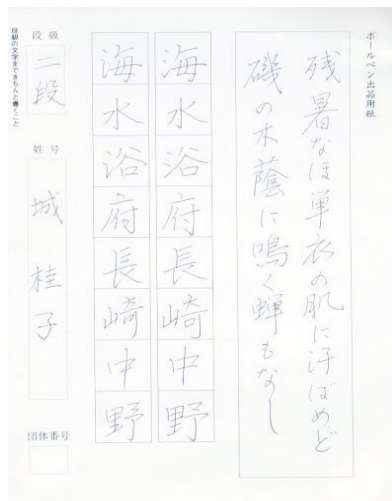 ボールペン出品用紙
残暑なほ単衣の肌に汗ばめど
磯の木蔭に鳴く蝉もなし
海水浴府長崎中野
海水浴府長崎中野
段級
二段
姓号
城桂子
団体番号
段級の文字まできちんと書くこと